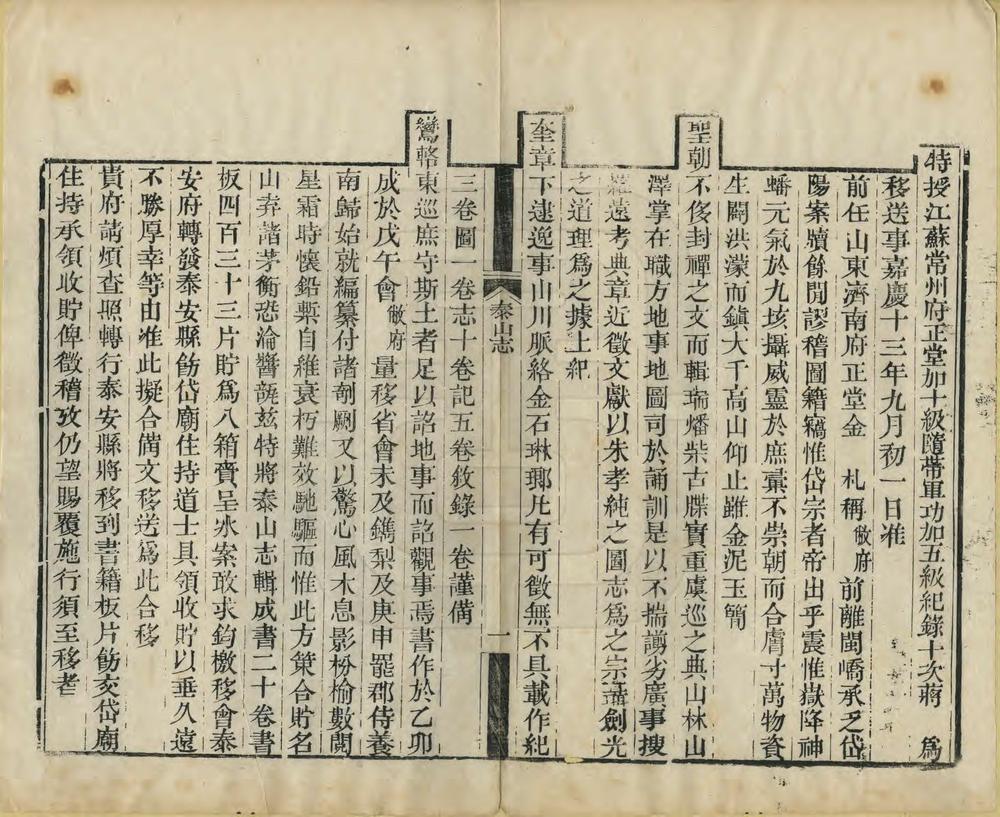 特授江蘇常州府正堂加十級隨帶軍功加五級紀錄十次蔣　爲
移送事嘉慶十三年九月初一日准
前任山東濟南府正堂金　札稱敝府前離閩嶠承乏岱
陽案牘餘閒謬稽圖籍竊惟岱宗者帝出乎震惟嶽降神
蟠元氣於九垓攝威靈於庶彙不崇朝而合膚寸萬物資
生闢洪濛而鎮大千高山仰止雖金泥玉簡
聖朝不侈封禪之文而輯瑞燔柴古牒實重虞巡之典山林山
澤掌在職方地事地圖司於誦訓是以不揣譾劣廣事搜
羅遠考典章近徵文獻以朱孝純之圖志爲之宗聶劍光
之道理爲之據上紀
奎章下逮逸事山川脈絡金石琳瑯凡有可徵無不具載作紀
泰山志
一
三卷圖一卷志十卷記五卷敘錄一卷謹備
鸞輅東巡庶守斯土者足以詔地事而詔觀事焉書作於乙卯
成於戊午會敝府量移省會未及鐫梨及庚申罷郡侍養
南歸始就編纂付諸剞劂又以驚心風木息影枌榆數閱
星霜時懷鉛槧自維衰朽難效馳驅而惟此方策合貯名
山弃諸茅衡恐淪醬瓿茲特將泰山志輯成書二十卷書
板四百三十三片貯爲八箱賫呈冰案敢求鈞檄移會泰
安府轉發泰安縣飭岱廟住持道士具領收貯以垂久遠
不勝厚幸等由准此擬合備文移送爲此合移
貴府請煩查照轉行泰安縣將移到書籍板片飭交岱廟
住持承領收貯俾徵稽攷仍望賜覆施行須至移者